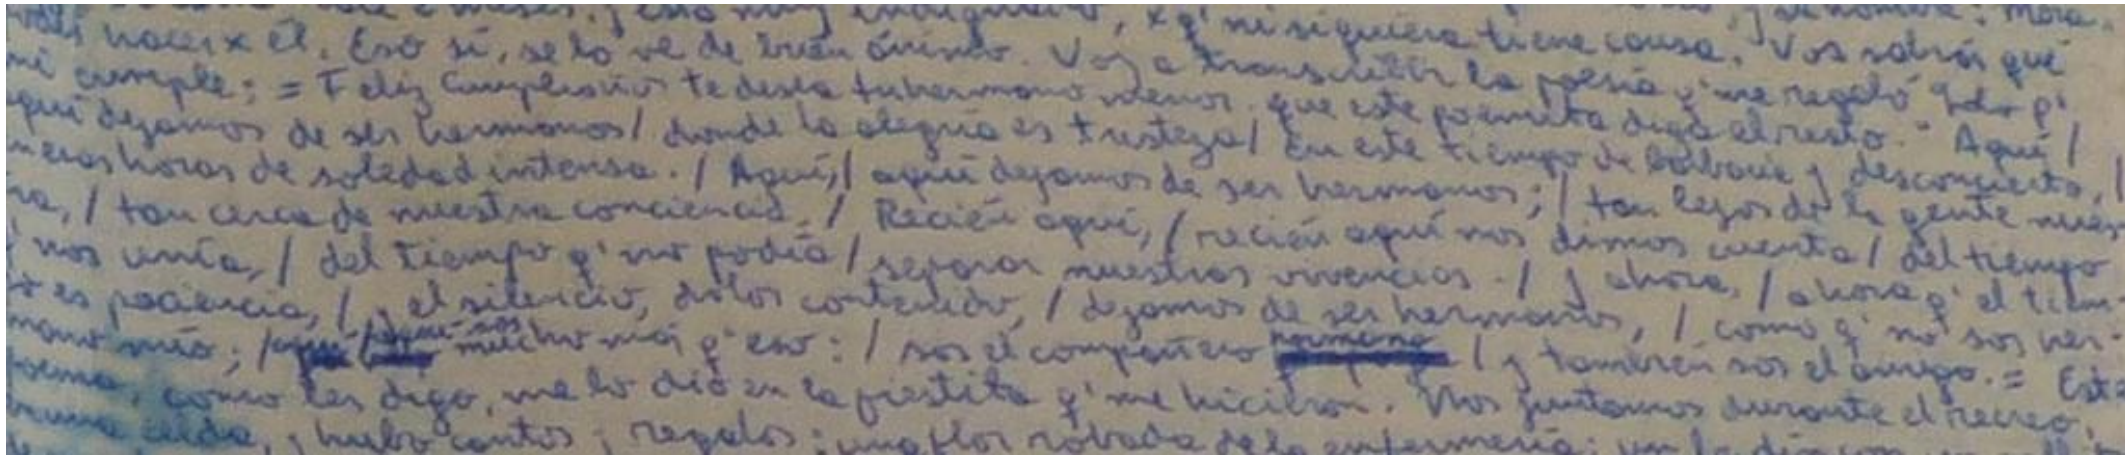 y está muy indignado, x q' ni siquiera tiene causa. Vos sabrás qué
hacer x él. Eso sí, se lo ve de buen ánimo. Voy a transcribir la poesía q' me regaló
mi cumple: = Feliz Cumpleaños te desea tu hermano menor. que este poemita diga el resto. - Aquí /
aquí dejamos de ser hermanos / donde la alegría es tristeza / En este tiempo de barbarie y desconcierto,
horas de soledad intensa. / Aquí, / aquí dejamos de ser hermanos; / tan lejos de la gente
/ tan cerca de nuestra conciencia. / Recién aquí, / recién aquí nos dimos cuenta / del tiempo
nos unía, / del tiempo q' no podía / separar nuestras vivencias. / y ahora, / ahora q' el tiem-
es paciencia, / y el silencio, dolor contenido, / dejamos de ser hermanos, / como q' no sos her-
mano mío; / aquí sos mucho más q' eso: / sos el compañero / y también sos el amigo. = Este
poema, como les digo, me lo dió en la fiestita q' me hicieron. Nos juntamos durante el recreo,
hubo cantos y regalos: una flor robada de la enfermería;